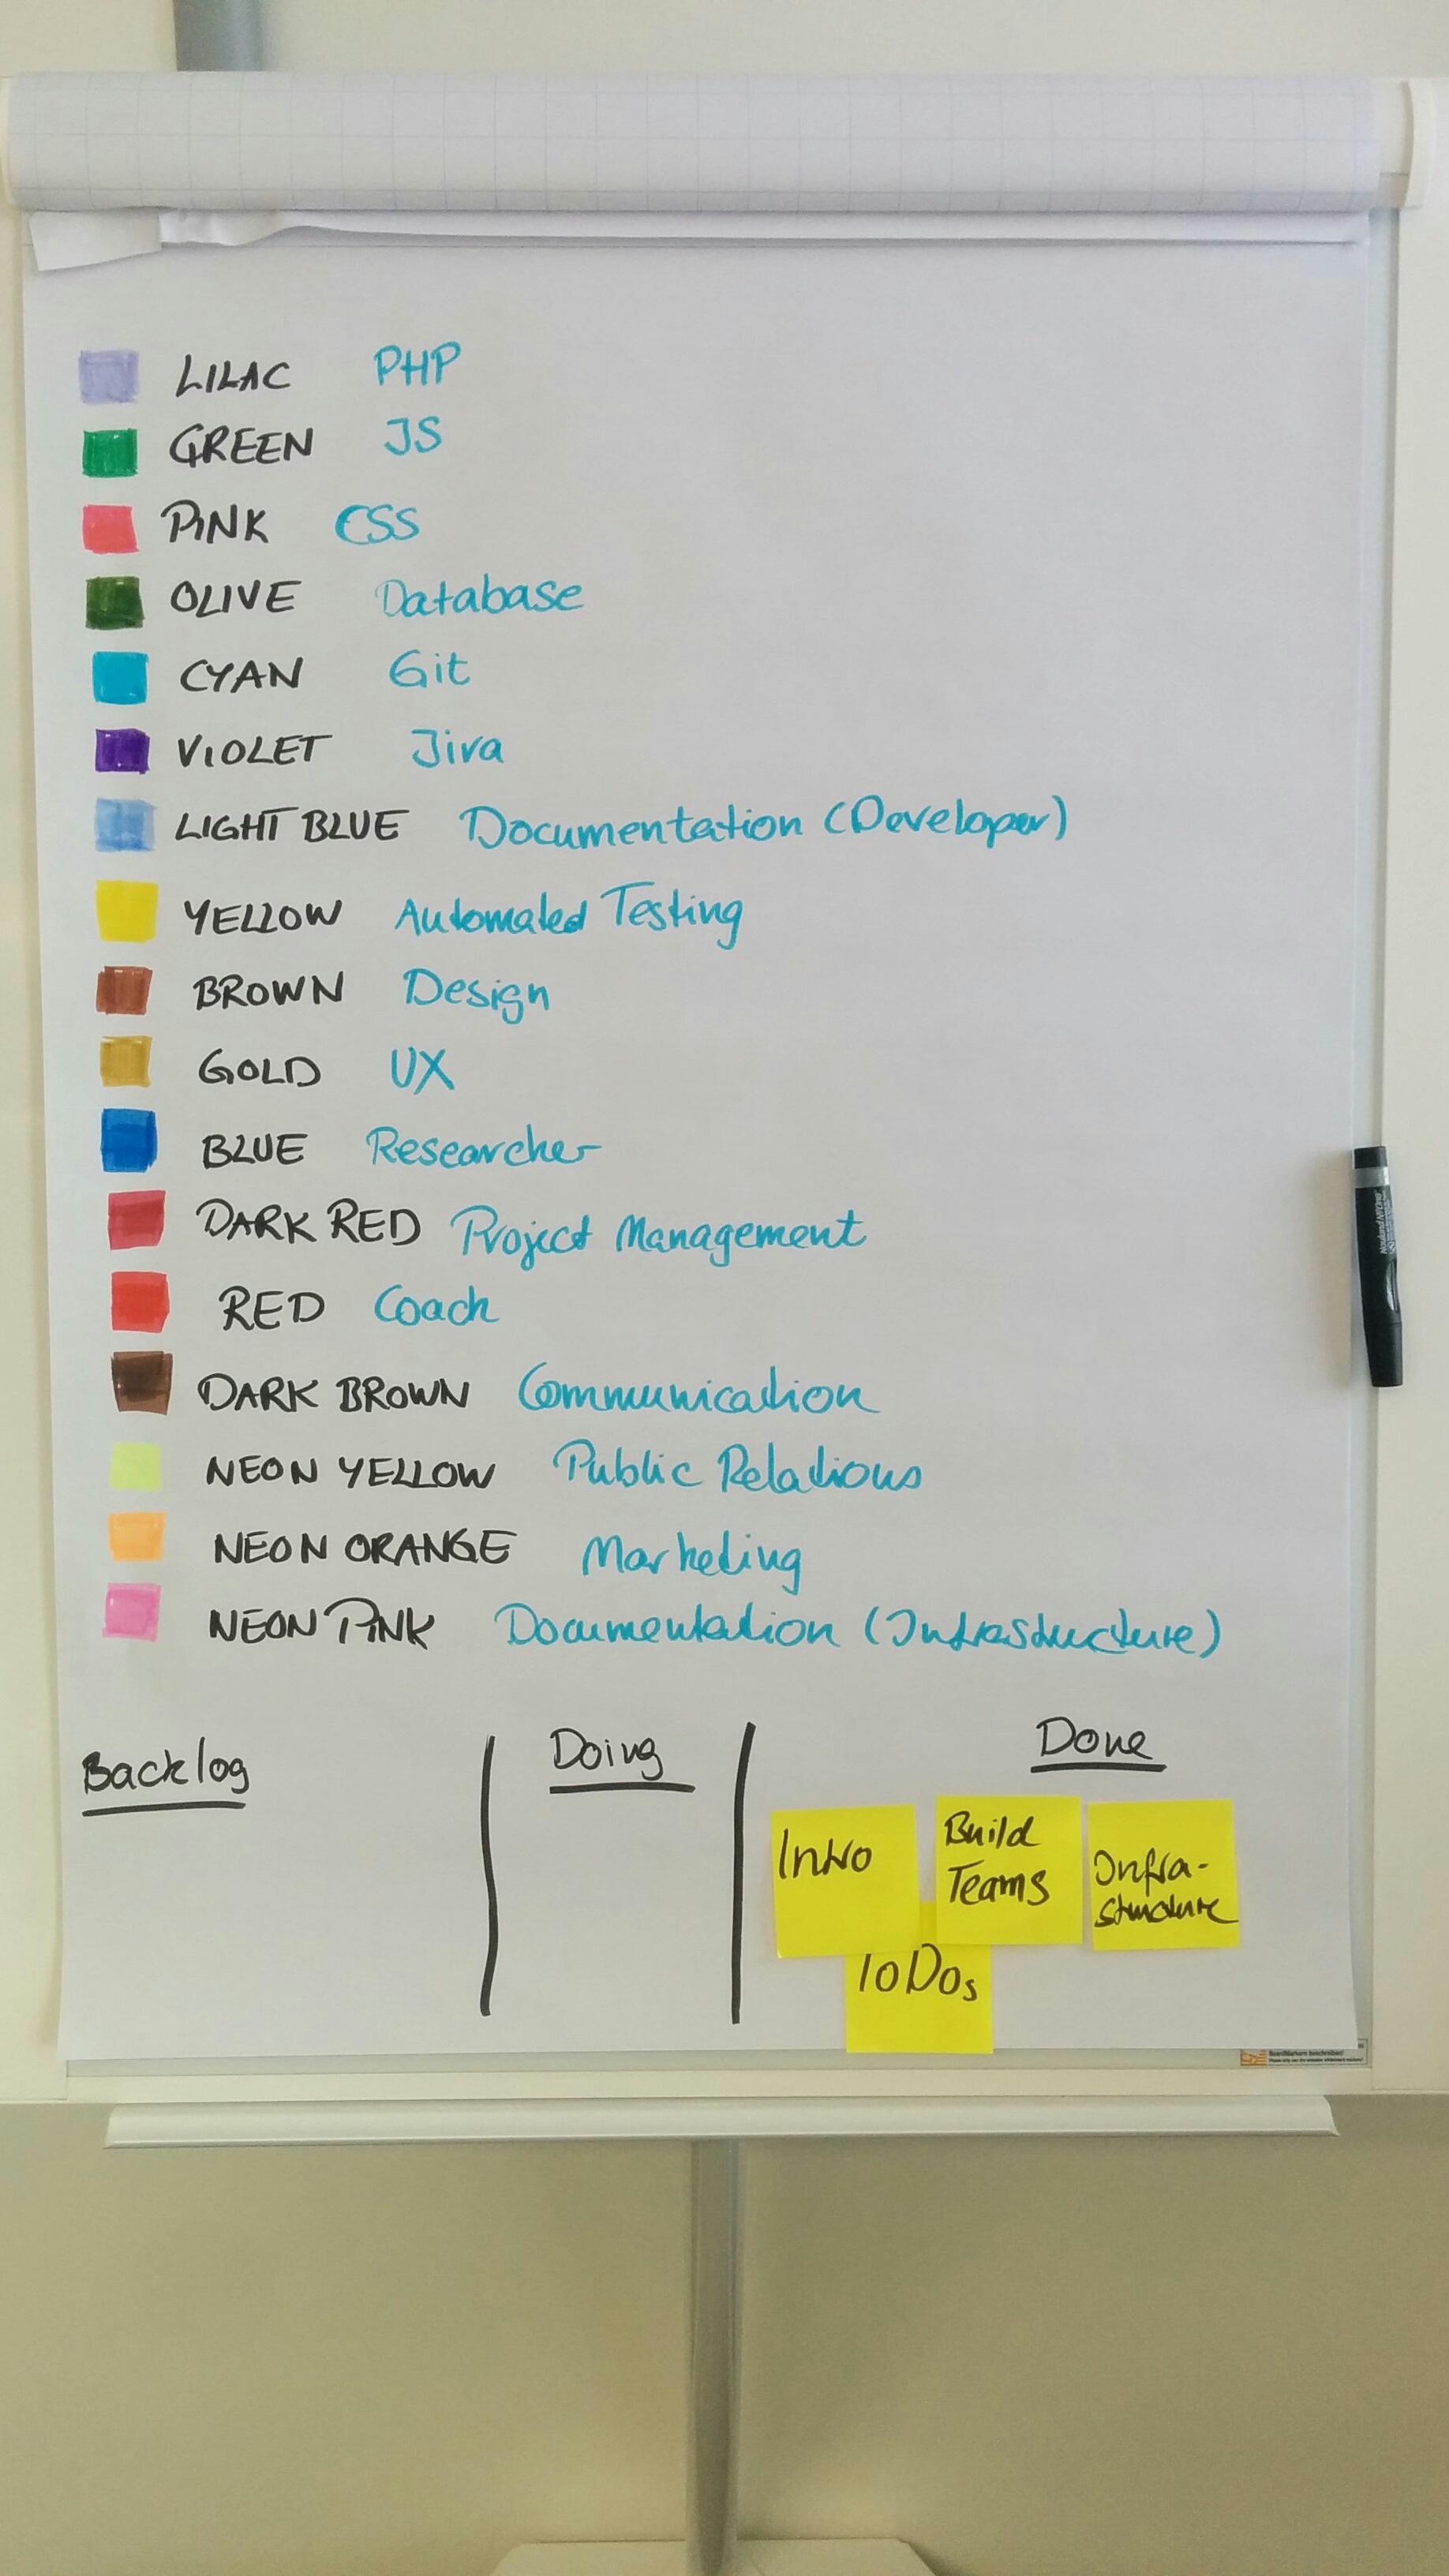 LILAC PHP
GREEN JS
PINK CSS
OLIVE Database
CYAN Git
VIOLET Jira
LIGHT BLUE Documentation (Developer)
YELLOW Automated Testing
BROWN Design
GOLD UX
BLUE Researcher
DARK RED Project Management
RED Coach
DARK BROWN Communication
NEON YELLOW Public Relations
NEON ORANGE Marketing
NEON PINK Documentation (Infrastructure)
Backlog
Doing
Done
Intro
Build
Teams
Infra-
structure
ToDos